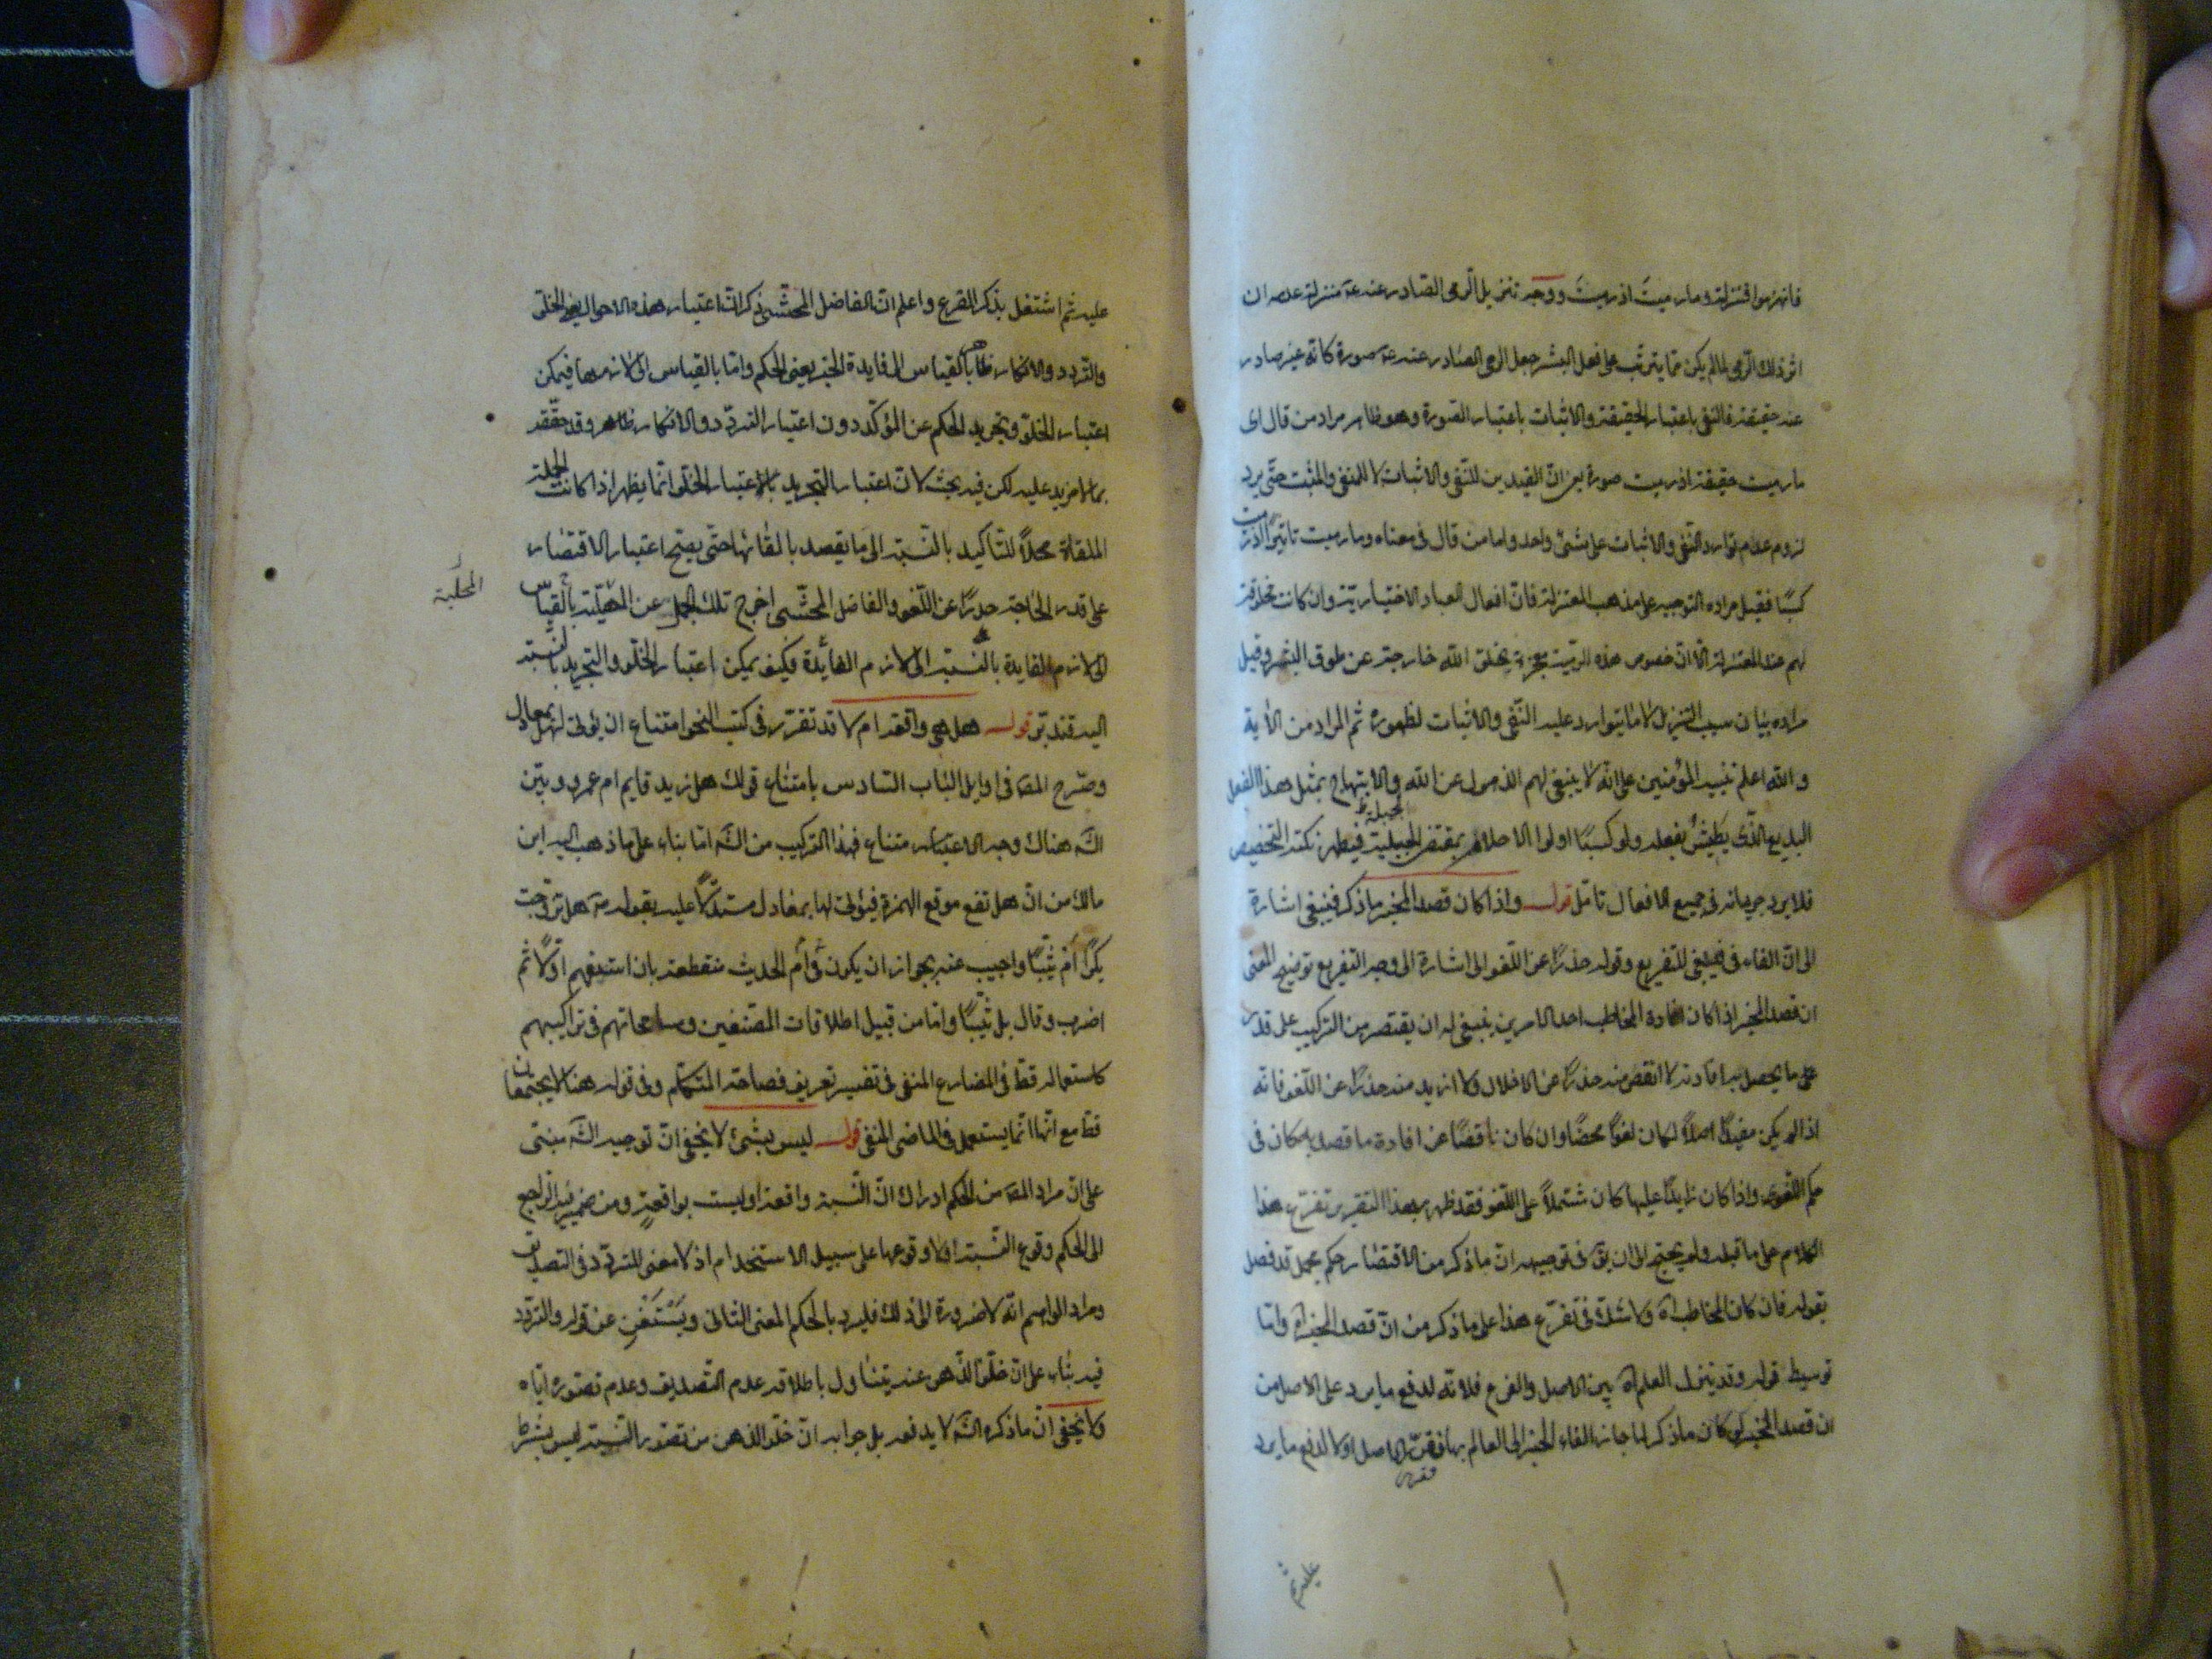 فانهزموا فنزلت وما رميت اذ رميت ووجه تنزيل الرمى الصادر عنه عم منزلة عدمه ان
اثر ذلك الرمى لما لم يكن مما يترتب على فعل البشر جعل الرمى الصادر عنه عم صورة كانه غير صادر
عنه حقيقة فالنفى باعتبار الحقيقة والاثبات باعتبار الصورة وهو ظاهر مراد من قال اى
ما رميت حقيقة اذ رميت صورة يعنى ان القيدين للنفى والاثبات لا للمنفى والمثبت حتى يرد
لزوم عدم توارد النفى والاثبات على شئ واحد واما من قال فى معناه وما رميت تاثيرا اذ رميت
كسبا فقيل مراده التوجيه على مذهب المعتزلة فان افعال العباد الاختيارية وان كانت مخلوقة
لهم عند المعتزلة الا ان خصوص هذه الرمية معجزة بخلق الله خارجة عن طوق البشر وقيل
مراده بيان سبب التنزيل لا ما يتوارد عليه النفى والاثبات لظهوره ثم المراد من الآية
والله اعلم تنبيه المؤمنين على انه لا ينبغى لهم الذهول عن الله والابتهاج بمثل هذا الفعل
البديع الذى يطيش بفعله ولو كسبا اولوا الاحلام بمقتضى الجبلية فيظهر نكتة التخصيص
فلا يرد جريانه فى جميع الافعال تامل قوله واذا كان قصد المخبر ما ذكر فينبغى اشارة
الى ان الفاء فى فينبغى للتفريع وقوله حذرا عن اللغو الى اشارة الى وجه التفريع توضيح المعنى
ان قصد المخبر اذا كان افادة المخاطب احد الامرين ينبغى له ان يقتصر من التركيب على قدر
على ما يحصل به افادته لا انقص منه حذرا عن الاخلال ولا ازيد منه حذرا عن اللغو فانه
اذا لم يكن مفيدا اصلا لكان لغوا محضا وان كان ناقصا عن افادة ما قصد به كان فى
حكم اللغو واذا كان زايدا عليها كان مشتملا على اللغو فقد ظهر بهذا التقرير تفرع هذا
الكلام على ما قبله ولم يحتج الى ان يق فى توجيهه ان ما ذكر من الاقتصار حكم مجمل قد فصل
بقوله فان كان المخاطب اه ولا شك فى تفرع هذا على ما ذكر من ان قصد المخبر اه واما
توسيط قوله وقد ينزل العالم اه بين الاصل والفرع فلانه لدفع ما يرد على الاصل من
ان قصد المخبر لو كان ما ذكر لما جاز القاء الخبر الى العالم بها فقرر الاصل اولا لدفع ما يرد
فقرر
عليه ثم
عليه ثم اشتغل بذكر الفرع واعلم ان الفاضل المحشى ذكر ان اعتبار هذه الاحوال يعنى الخلو
والتردد والانكار ظاهر بالقياس الى فايدة الخبر يعنى الحكم واما بالقياس الى لازمها فيمكن
اعتبار الخلو وتجريد الحكم عن المؤكد دون اعتبار التردد والانكار ظاهر وقد حققه
بما لا مزيد عليه لكن فيه بحث لان اعتبار التجريد بالاعتبار الخلو انما يظهر اذا كانت الجملة
الملقاة محلا للتاكيد بالنسبة الى ما يقصد بالقائها حتى يصح اعتبار الاقتصار
على قدر الحاجة حذرا عن اللغو والفاضل المحشى اخرج تلك الجمل عن المحلية بالقياس
المحلية
الى لازم الفايدة بالنسبة الى لازم الفائدة فكيف يمكن اعتبار الخلو والتجريد بالنسبة
اليه فتدبر قوله هل هى واقعة ام لا قد تقرر فى كتب النحو امتناع ان يؤتى لهل بمعادل
وصرح المص فى اوايل الباب السادس بامتناع قولك هل زيد قايم ام عمرو وبين
الش هناك وجه الامتناع فهذا التركيب من الش اما بناء على ما ذهب اليه ابن
مالك من ان هل تقع موقع الهمزة فيؤتى لها بمعادل مستدلا عليه بقوله عم هل تزوجت
بكرا أم ثيبا واجيب عنه بجواز ان يكون أم فى الحديث منقطعة بان استفهم اولا ثم
اضرب وقال بل ثيبا واما من قبيل اطلاقات المصنفين ومسامحاتهم فى تراكيبهم
كاستعماله قط فى المضارع المنفى فى تفسير تعريف فصاحة المتكلم وفى قوله هنا لا يجتمعان
قط مع انها انما يستعمل فى الماضى المنفى قوله ليس بشئ لا يخفى ان توجيه الش مبنى
على ان مراد المص من الحكم ادراك ان النسبة واقعة او ليست بواقعة ومن ضمير فيه الراجع
الى الحكم وقوع النسبة اولا وقوعها على سبيل الاستخدام اذ لا معنى للتردد فى التصديق
ومراد الواهم انه لا ضرورة الى ذلك فليرد بالحكم المعنى الثانى ويستغن عن قوله والتردد
فيه بناء على ان خلو الذهن عنه يتناول باطلاقه عدم التصديق وعدم تصوره اياه
ولا يخفى ان ما ذكره الش لا يدفعه بل جوابه ان خلو الذهن من تصور النسبة ليس بشرط